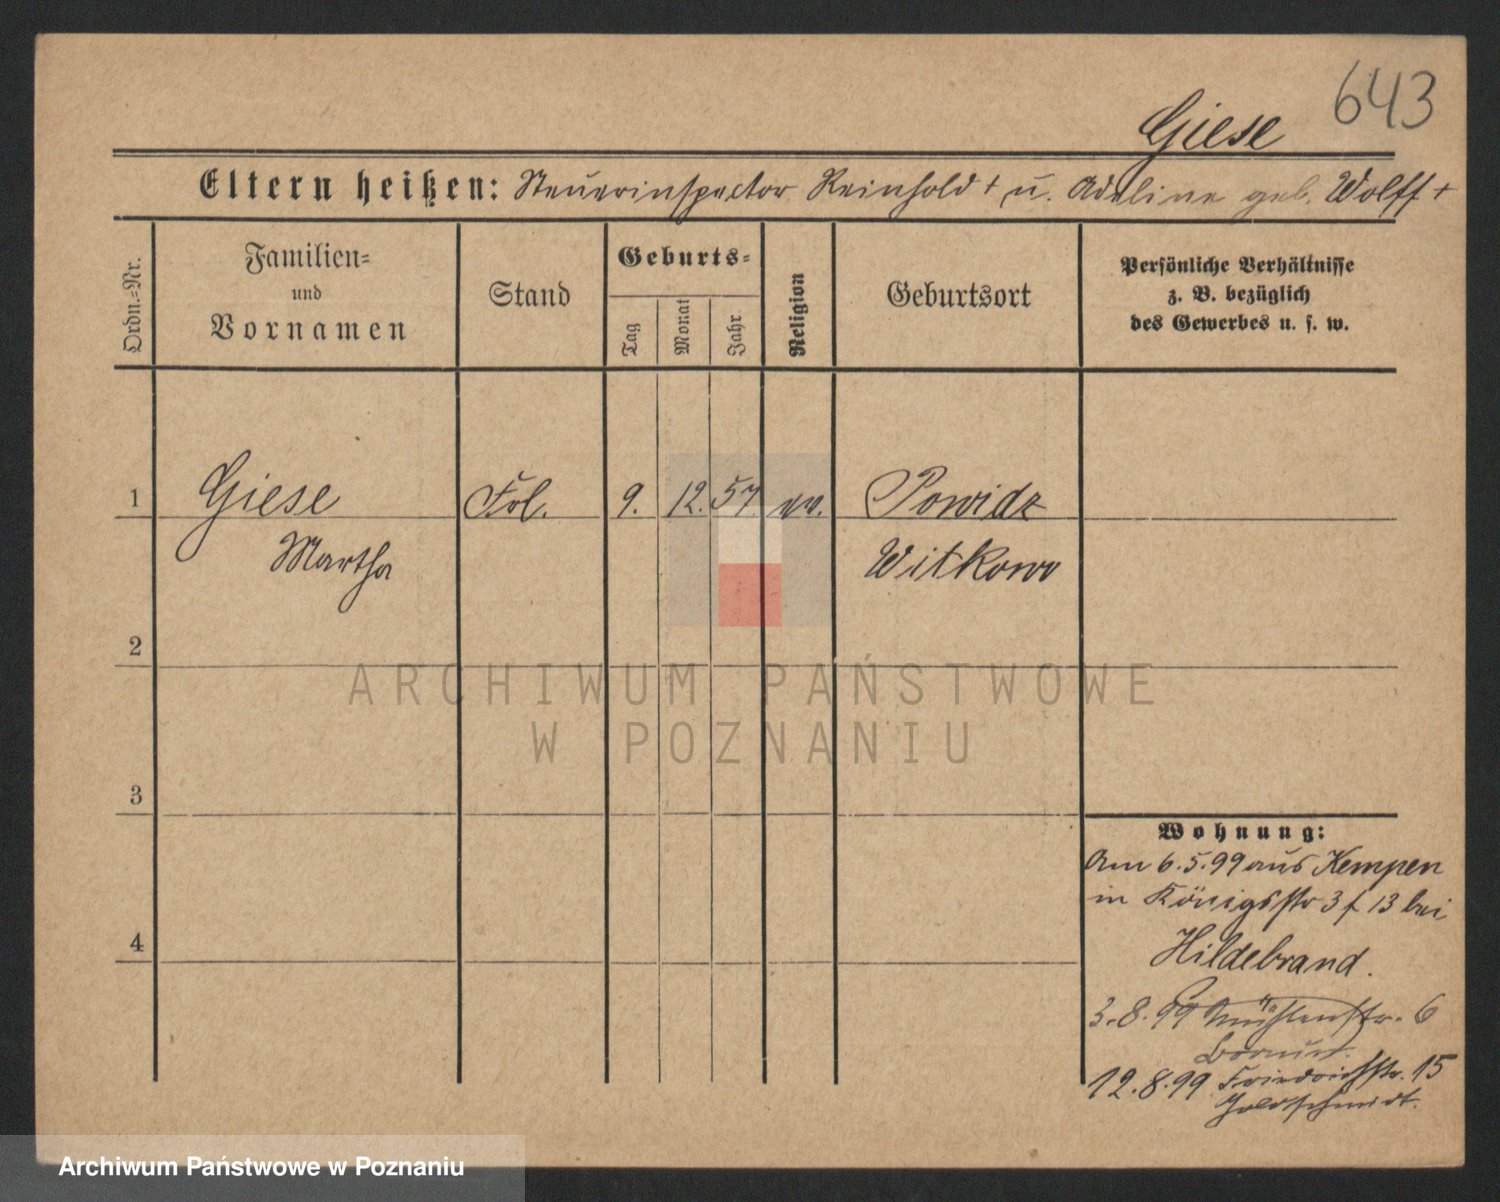 643
Giese
Eltern heißen: Steuerinspector Reinhold + u. Adeline geb. Wolff +
Ordn.-Nr.
Familien-
und
Vornamen
Stand
Geburts-
Tag
Monat
Jahr
Religion
Geburtsort
Persönliche Verhältnisse
z. B. bezüglich
des Gewerbes u. s. w.
1 Giese Frl. 9. 12. 57. ev. Powidz
Martha Witkowo
2
ARCHIWUM PAŃSTWOWE
W POZNANIU
3
Wohnung:
Am 6.5.99 aus Kempen
in Königsstr 3 f 13 bei
4
Hildebrand.
3.8.99 Mühlenstr. 6
12.8.99 Friedrichstr. 15
Goldschmidt.
Archiwum Państwowe w Poznaniu